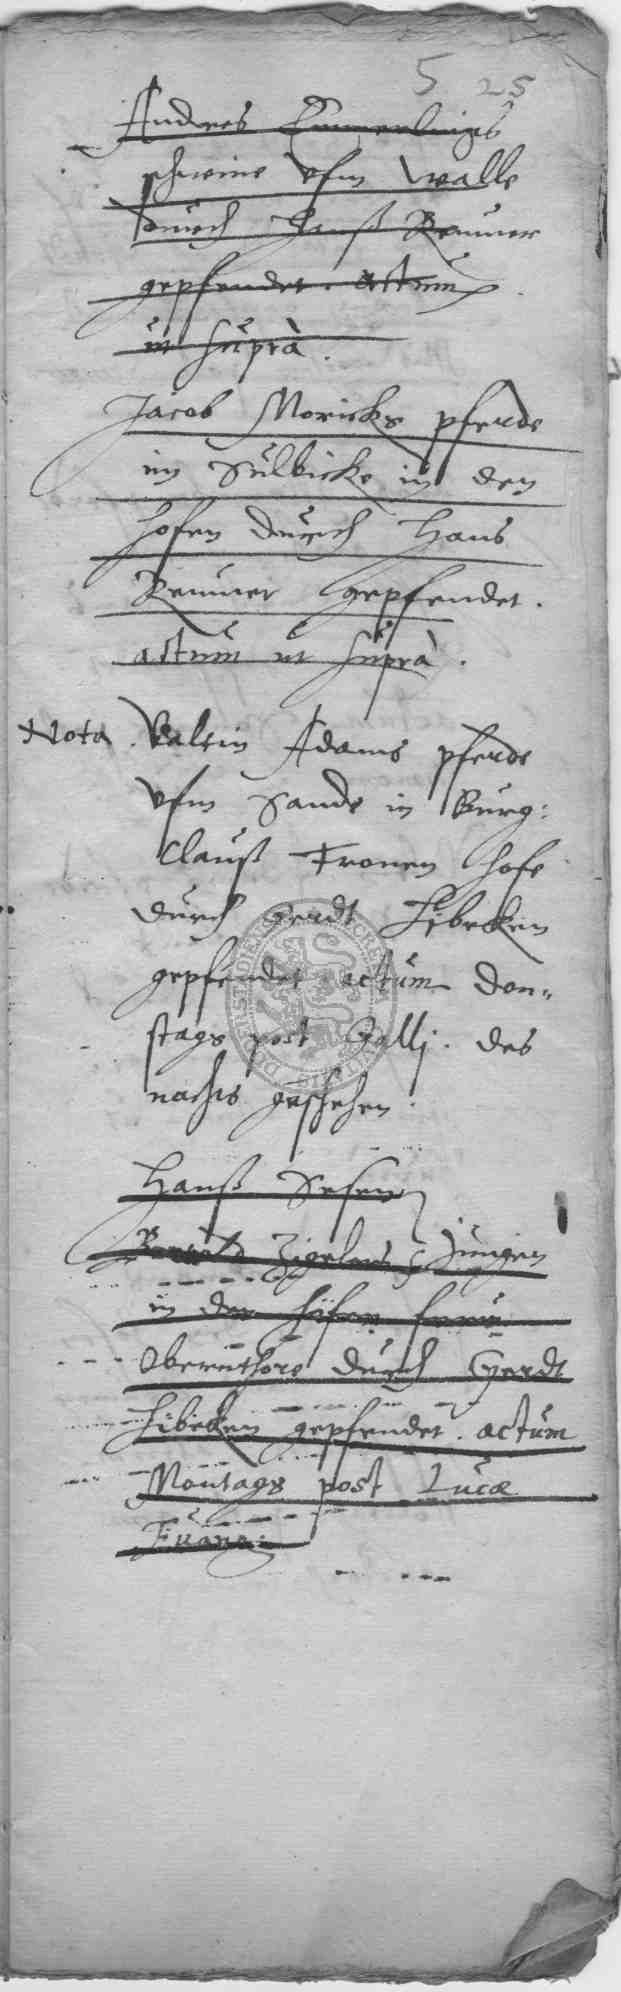 5 25
Andres Emmerlings
schweine vfm walle
durch Hanß Renner
gepfendet. actum
ut suprà.
Jacob Moricks pferde
im Sulbicke in den
hofen durch Hans
Renner gepfendet.
actum ut suprà.
Nota. Valtin Adams pferde
vfm Sande in Burg:
Clauß Tronen hofe
durch Gerdt Libecken
gepfendet actum don„
stags post Galli. des
nachts geschehen.
Hanß Sesen
Zigelers Jungen
in der
Obernthore durch Gerdt
Libecken gepfendet. actum
Montags post Lucæ